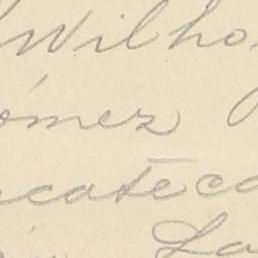 Wilho
ómez
cateca
La